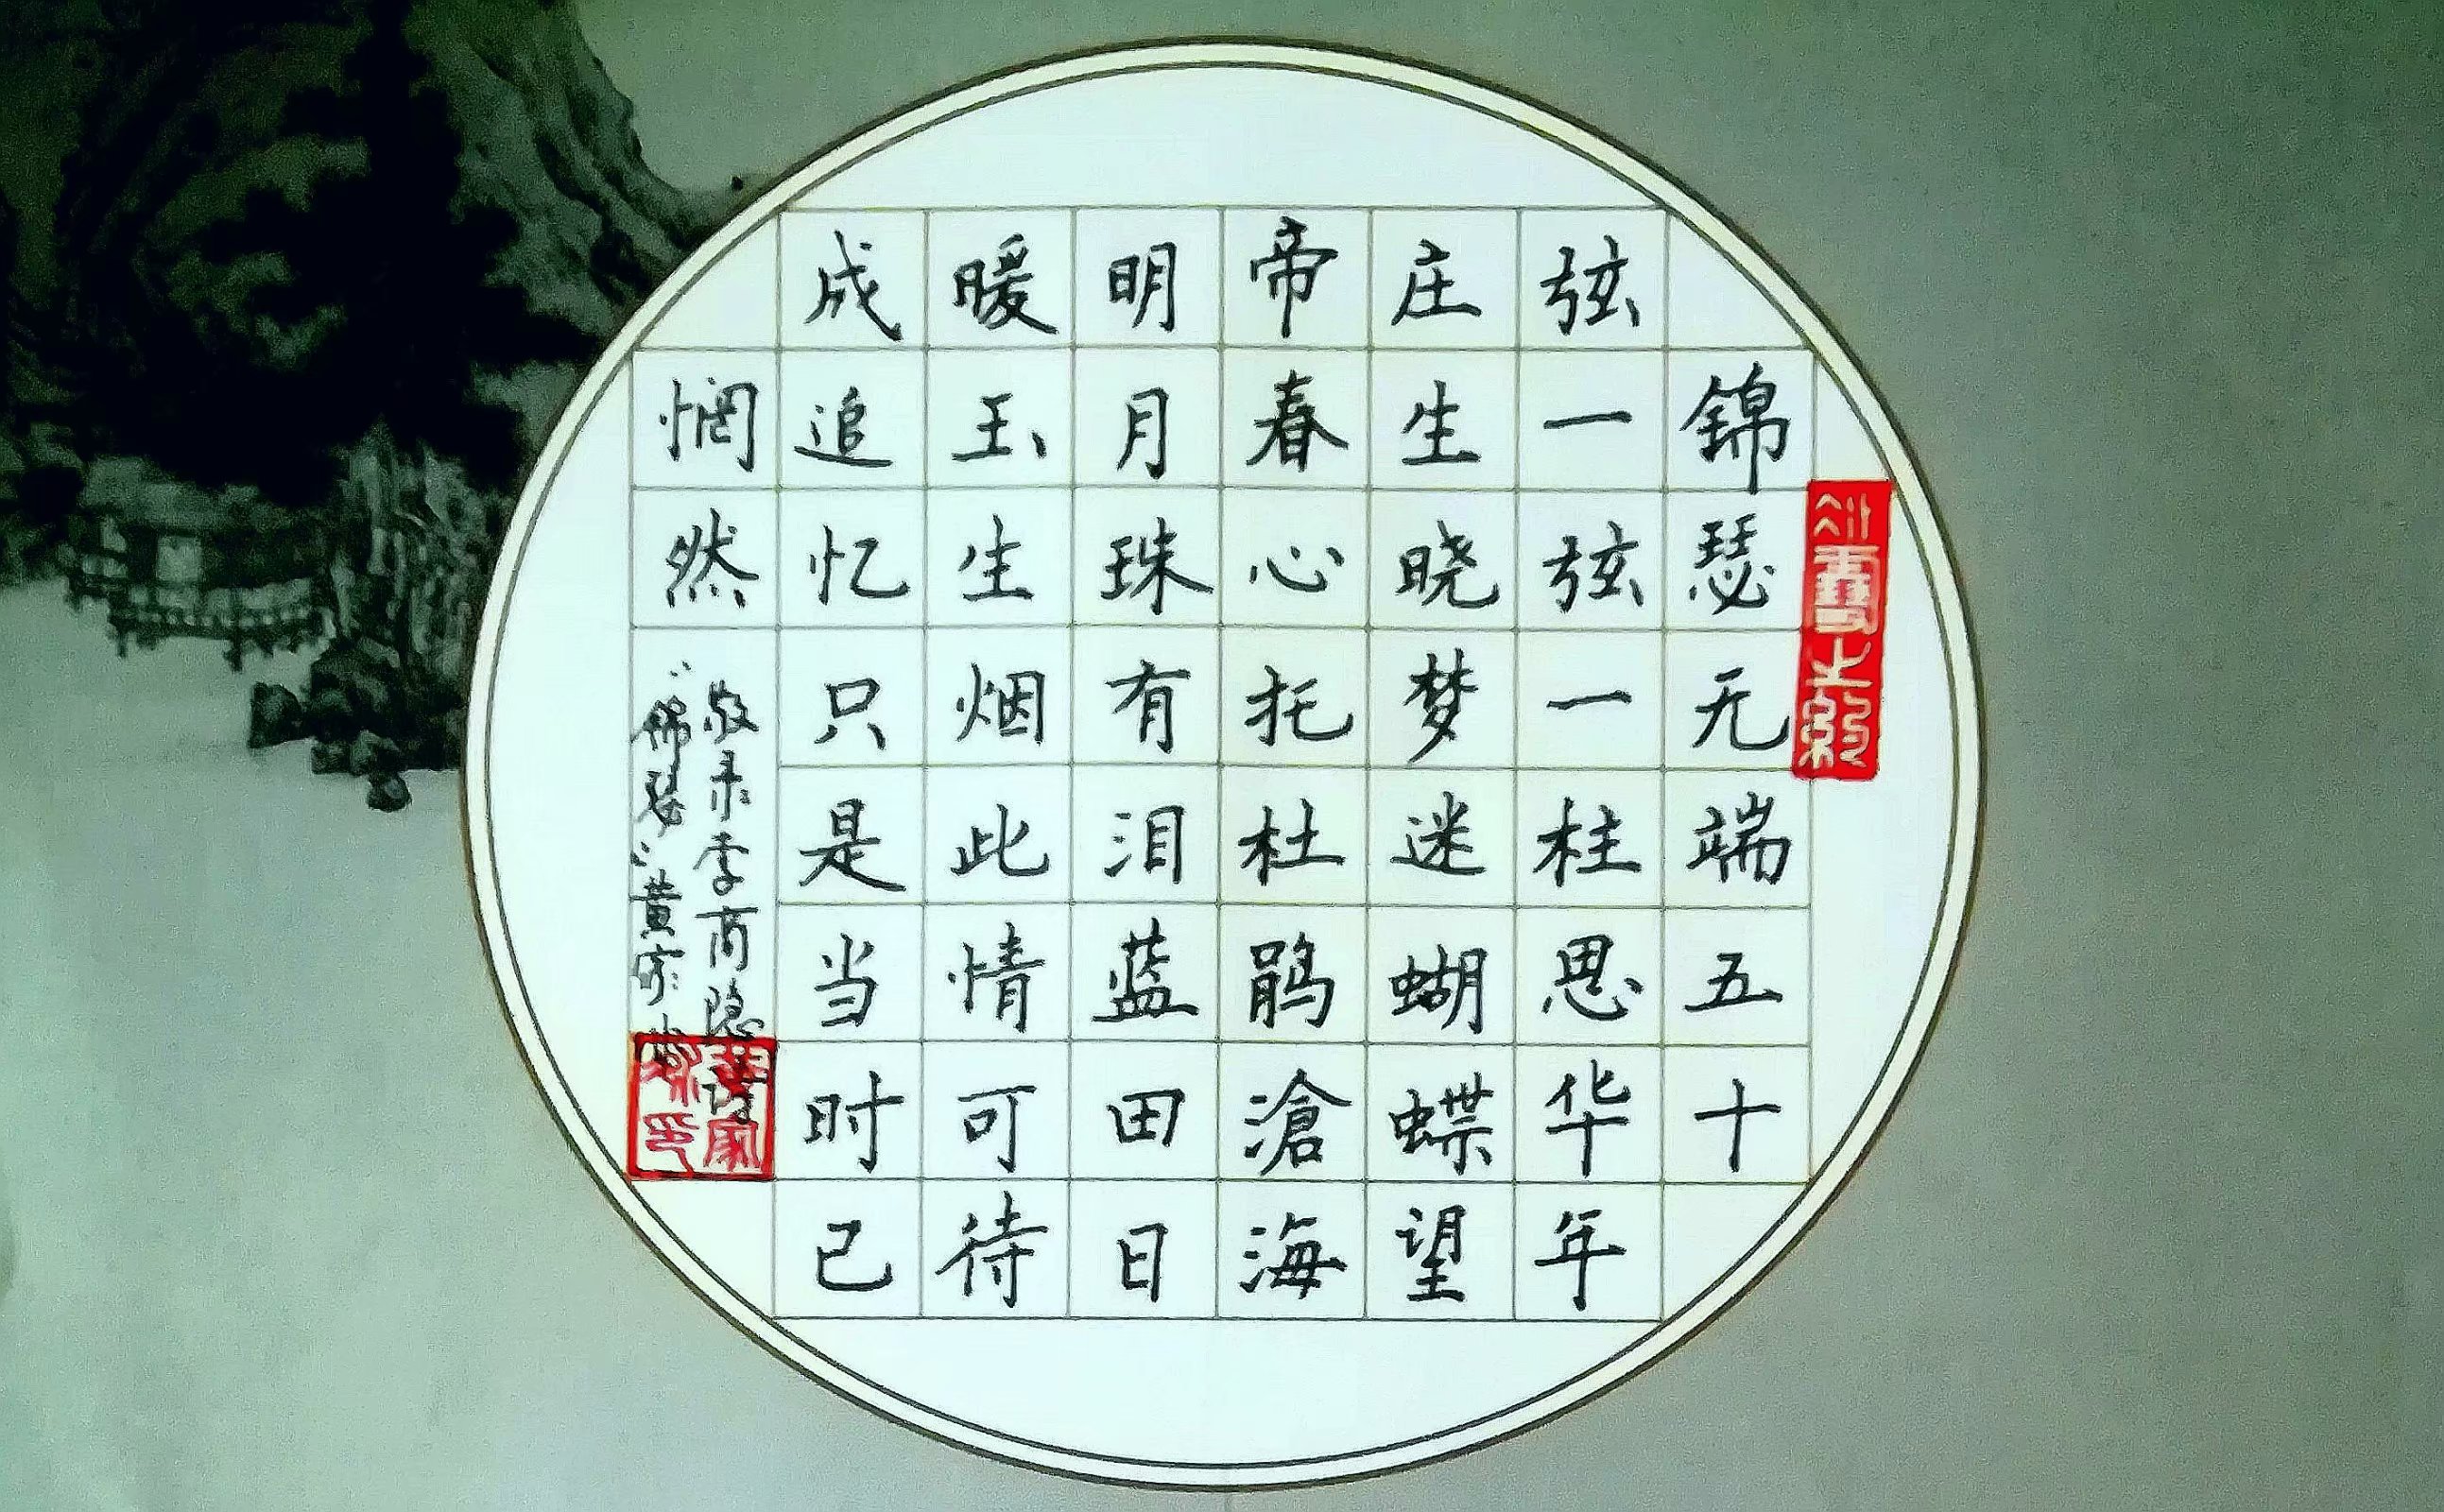 錦瑟无端五十
弦一弦一柱思华年
庄生晓梦迷蝴蝶望
帝春心托杜鹃滄海
明月珠有泪蓝田日
暖玉生烟此情可待
成追忆只是当时已
惘然
敬录李商隐诗
"锦瑟"黄家